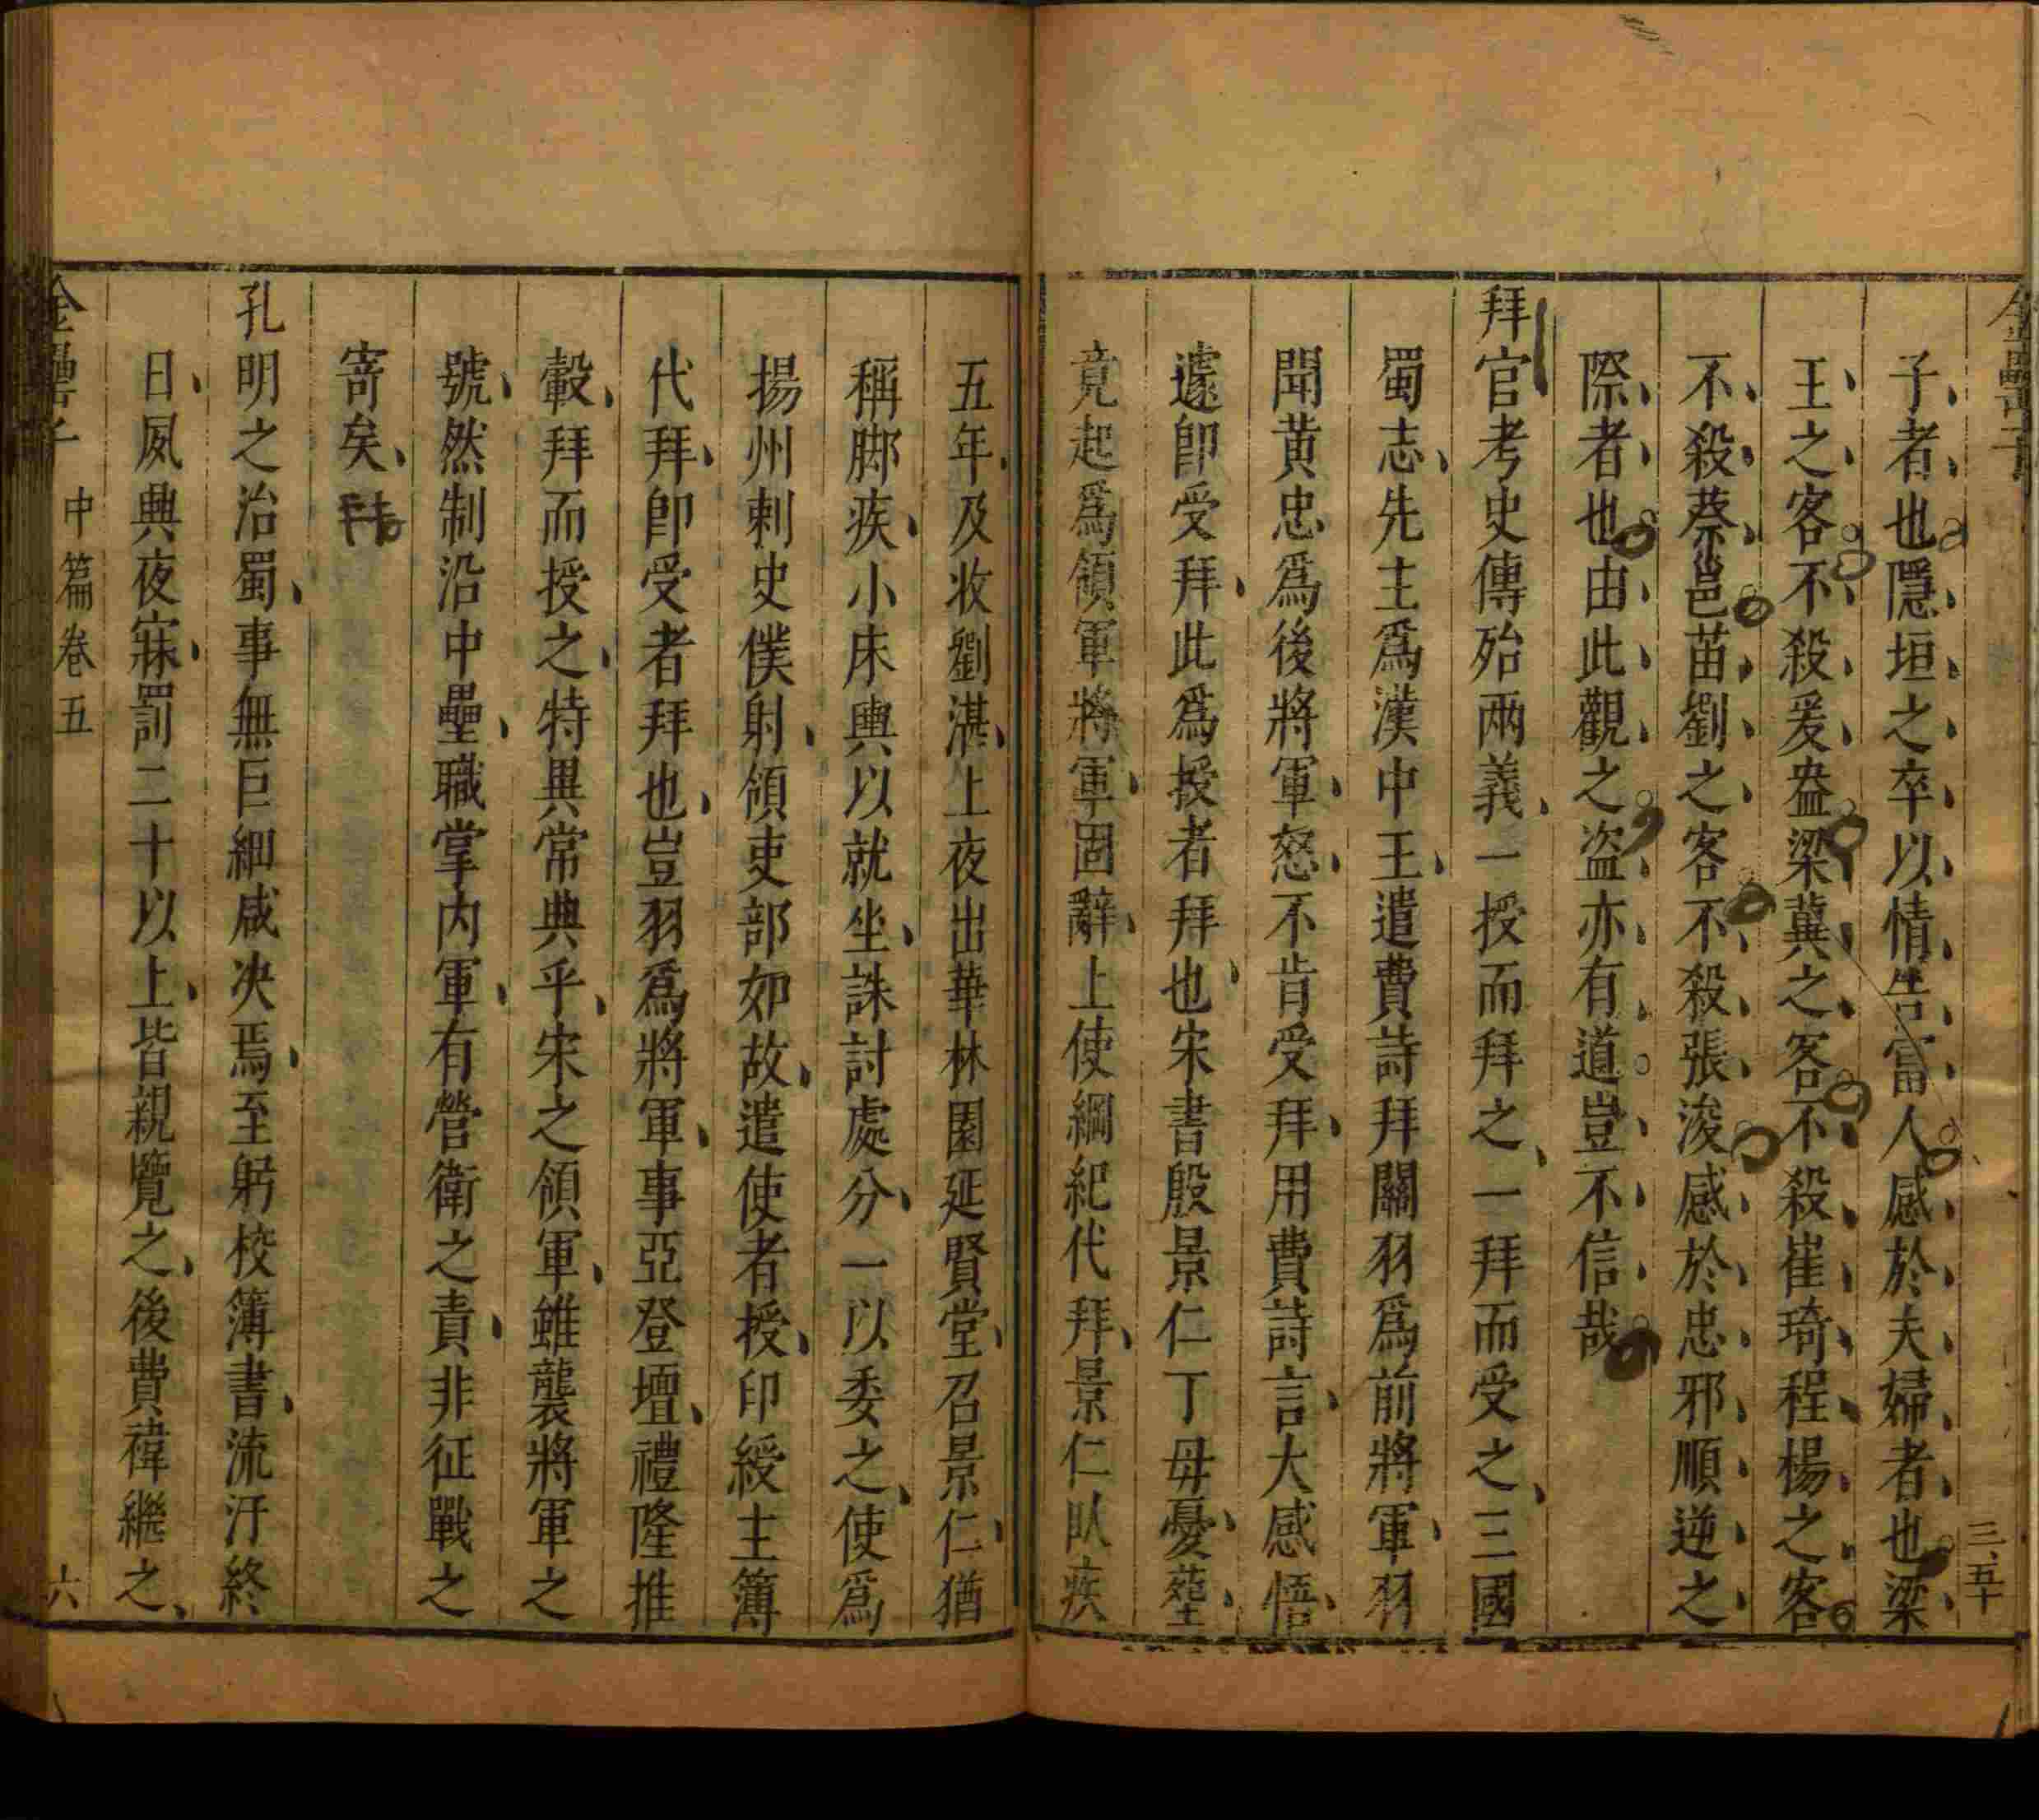 金罍子
三五十
子者也隱垣之卒以情告富人感於夫婦者也梁
王之客不殺爰盎梁冀之客不殺崔琦程楊之客
不殺蔡邕苗劉之客不殺張浚感於忠邪順逆之
際者也由此觀之盜亦有道豈不信哉
拜官考史傳殆兩義一授而拜之一拜而受之三國
蜀志先主爲漢中王遣費詩拜關羽爲前將軍羽
聞黃忠爲後將軍怒不肯受拜用費詩言大感悟
遽卽受拜此爲授者拜也宋書殷景仁丁母憂塟
竟起爲領軍將軍固辭上使綱紀代拜景仁臥疾
五年及收劉湛上夜出華林園延賢堂召景仁猶
稱脚疾小床輿以就坐誅討處分一以委之使爲
揚州刺史僕射領吏部如故遣使者授印綬主簿
代拜卽受者拜也豈羽爲將軍事亞登壇禮隆推
轂拜而授之特異常典乎宋之領軍雖襲將軍之
號然制沿中壘職掌內軍有營衛之責非征戰之
寄矣
孔明之治蜀事無巨細咸決焉至躬校簿書流汗終
日夙興夜寐罰二十以上皆親覽之後費禕繼之
金罍子 中篇卷五 六